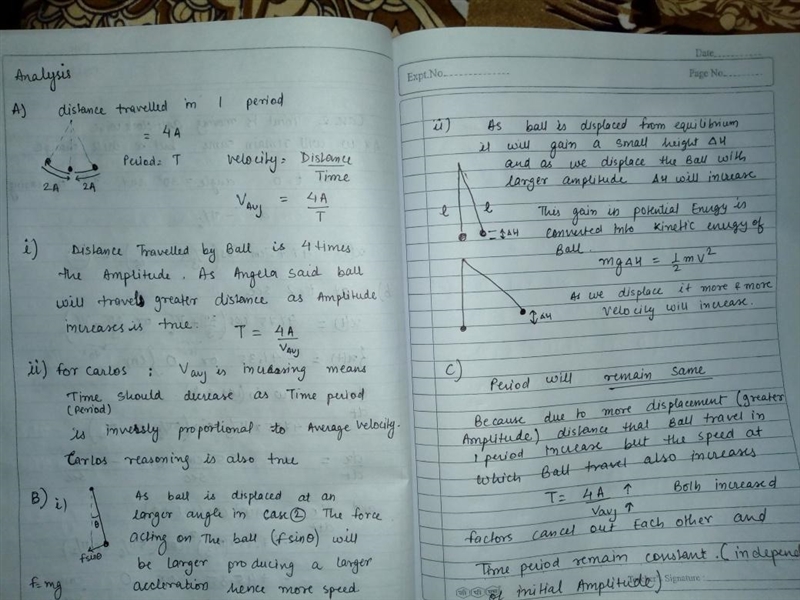 Analysis
A) distance travelled in 1 period
= 4A
Period = T
2A 2A
Velocity = Distance / Time
VAvj = 4A / T
i) Distance Travelled by Ball is 4 times
the Amplitude. As Angela said ball
will travel greater distance as Amplitude
increases is true.
T = 4A / VAvj
ii) for Carlos : Vavj is increasing means
Time should decrease as Time period
(period)
is inversly proportional to Average velocity.
Carlos reasoning is also true
B) i) As ball is displaced at an
larger angle in case ② The force
acting on The ball (fsinθ) will
be larger producing a larger
accleration hence more speed
θ
fsinθ
f=mg
Date
Expt.No.
Page No.
ii) As ball is displaced from equilibrium
it will gain a small height ΔH
and as we displace the Ball with
larger amplitude ΔH will increase
l l
ΔH
This gain in potential Energy is
converted Into kinetic energy of
Ball.
mgΔH = 1/2 mv²
As we displace it more & more
velocity will increase.
ΔH
C) Period will remain same
Because due to more displacement (greater
Amplitude) distance that Ball travel in
1 period increase but the speed at
which Ball travel also increases
T = 4A↑ / Vavj↑ Both increased
factors cancel out Each other and
Time period remain constant. (independ
Signature :
initial Amplitude)